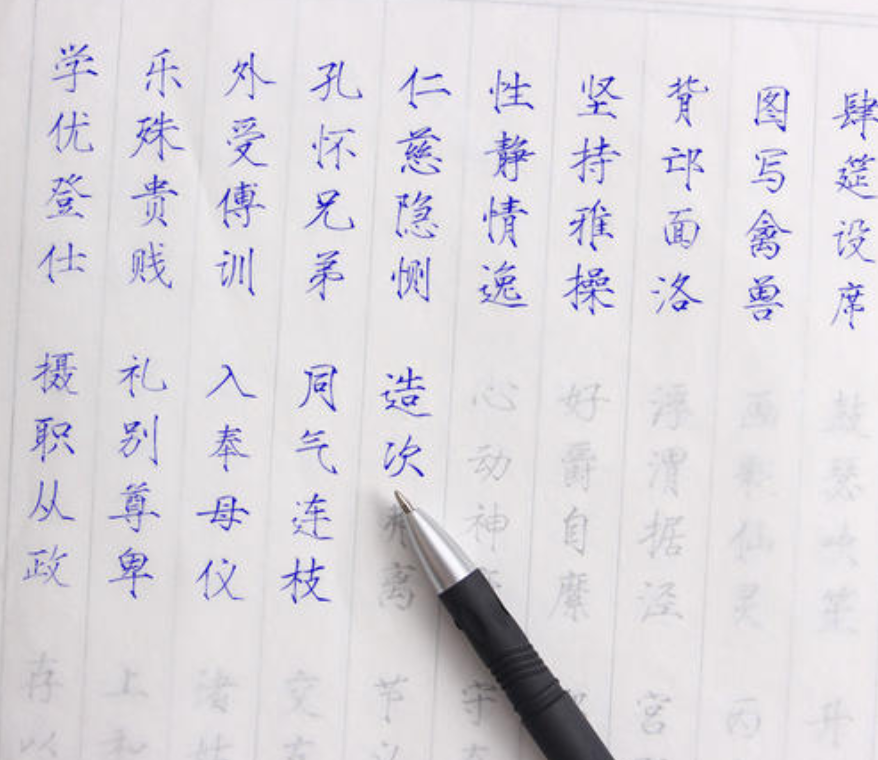 学优登仕 摄职从政 存以
乐殊贵贱 礼别尊卑 上和
外受傅训 入奉母仪 诸姑
孔怀兄弟 同气连枝 交友
仁慈隐恻 造次弗离 节义
性静情逸 心动神 守
坚持雅操 好爵自縻
背邙面洛 浮渭据泾 宫
图写禽兽 画彩仙灵 丙
肆筵设席 鼓瑟吹笙 升